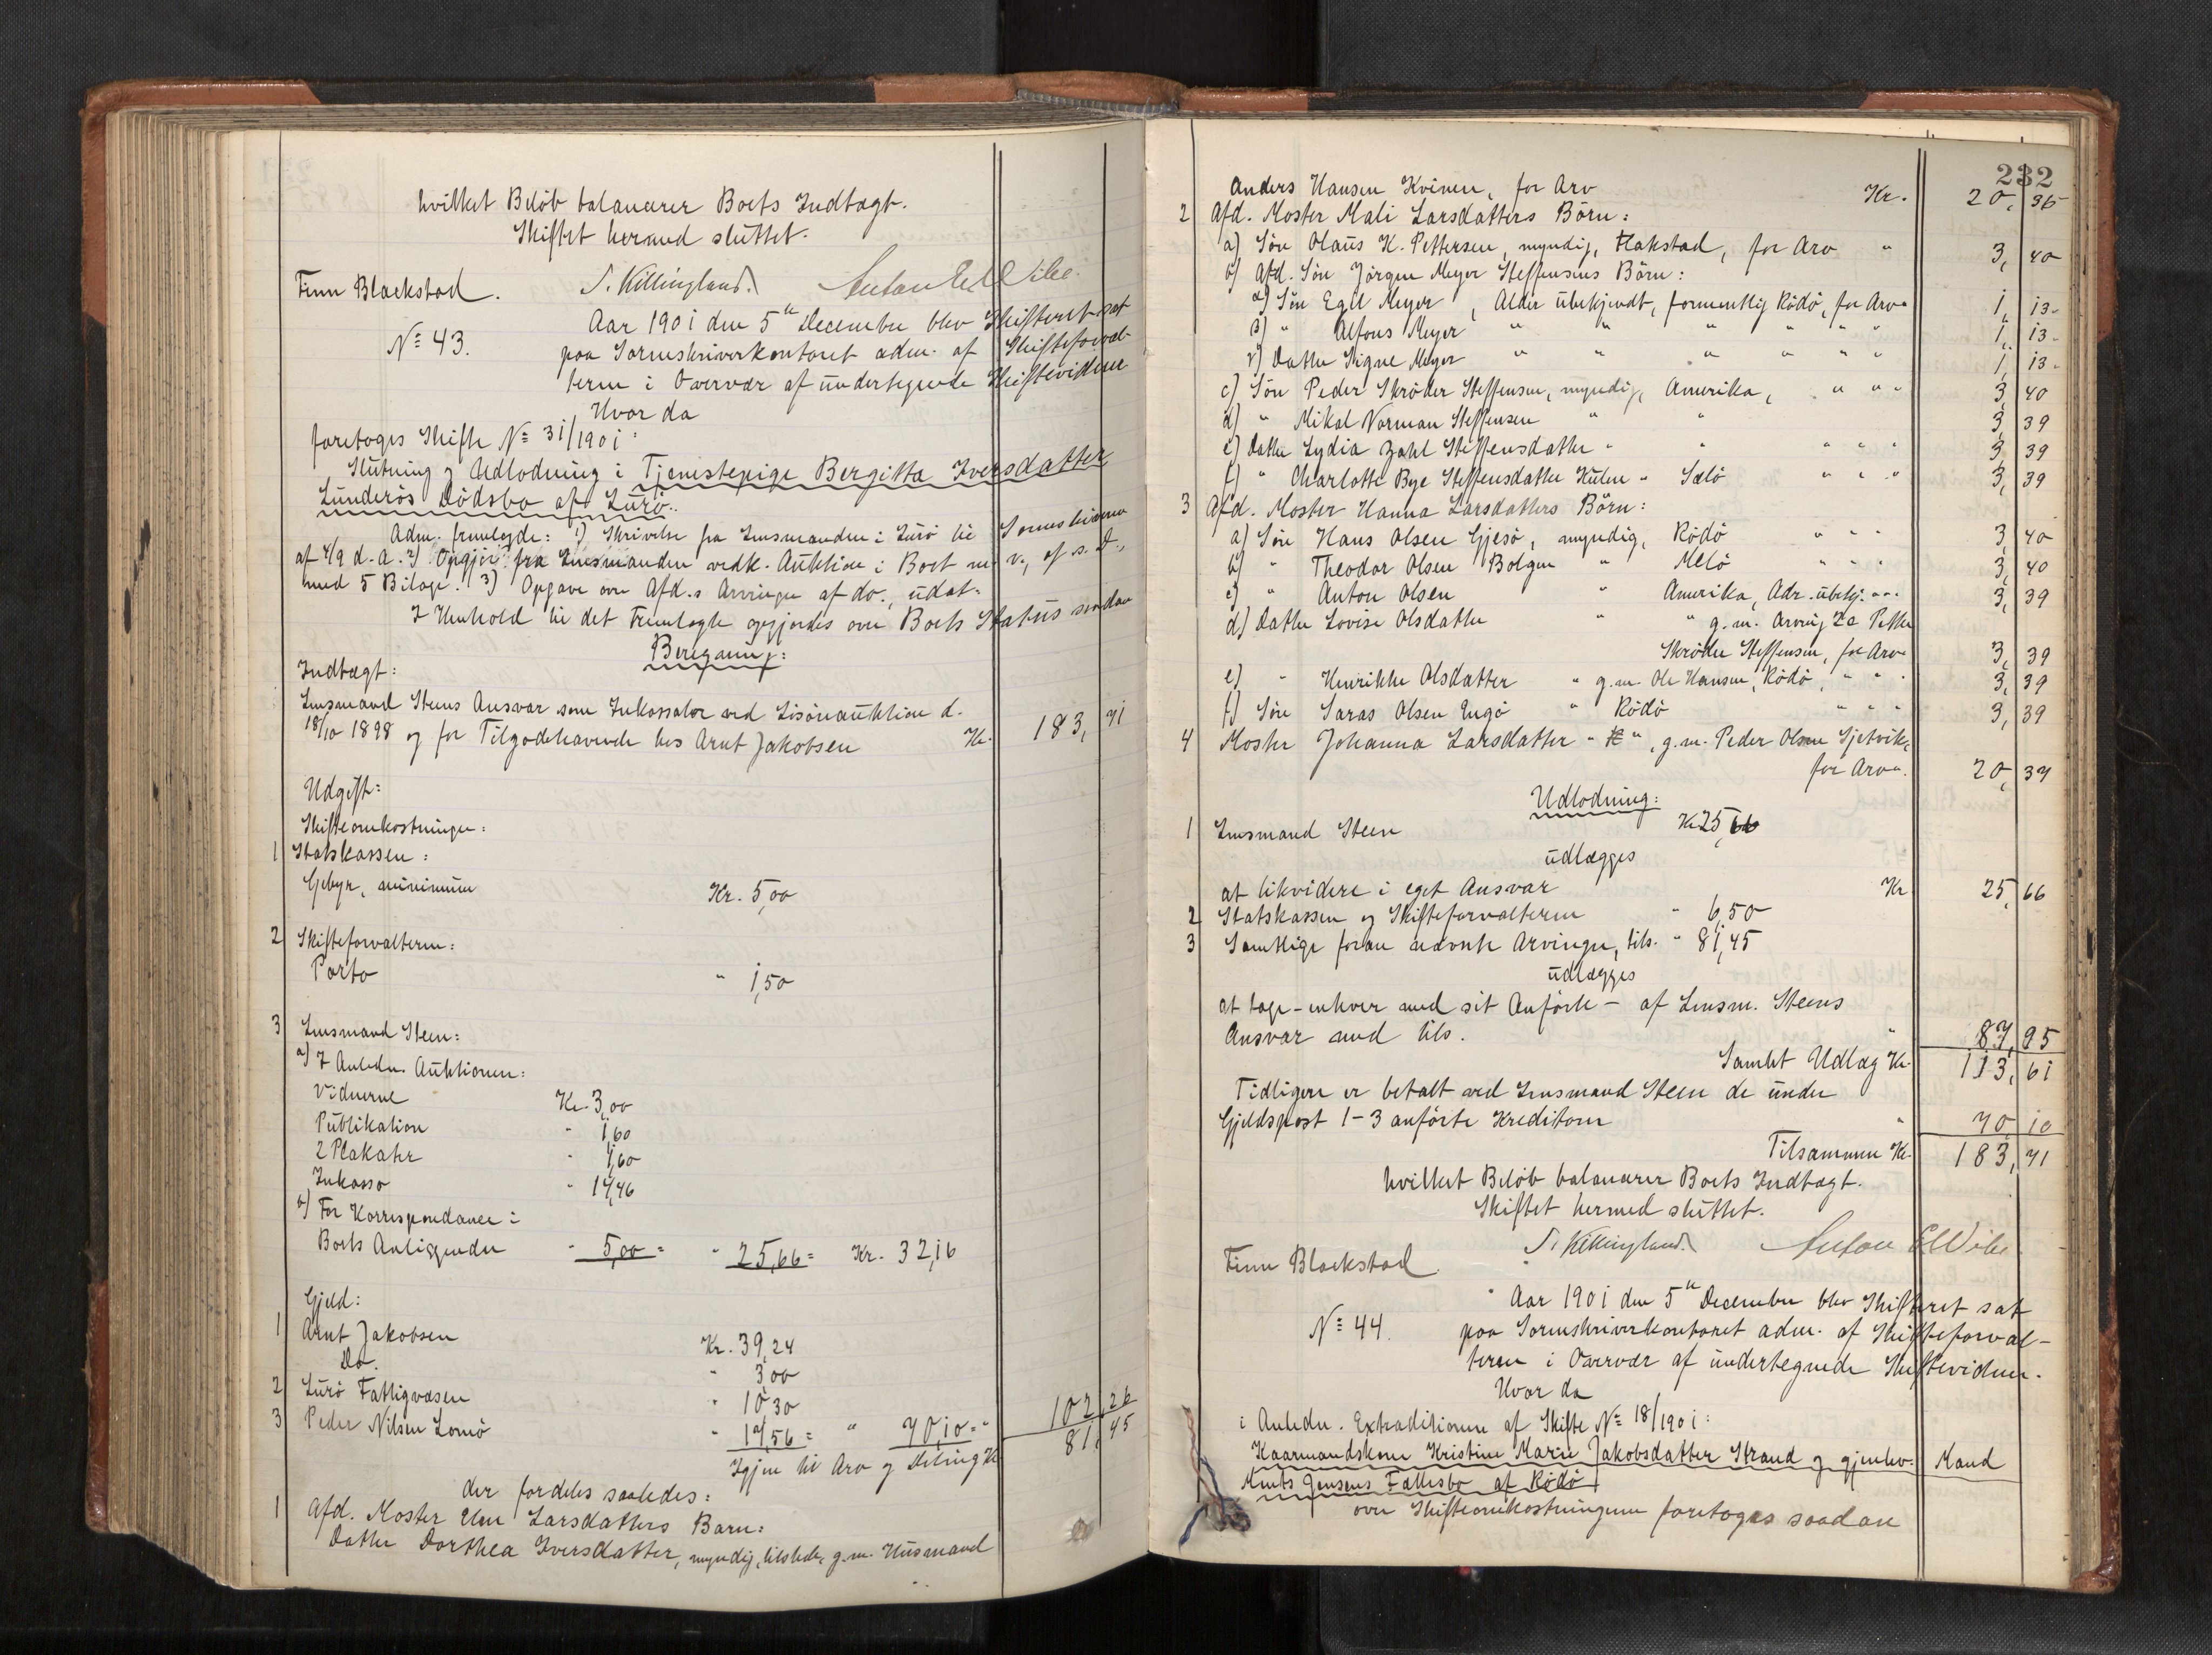 hvilket Beløb balancerer Boets Indtægt.
Skiftet hermed sluttet.
Finn Blackstad. S. Killingland. Anton E Wibe.
No 43. Aar 1901 den 5te December blev Skifteret sat
paa Sorenskriverkontoret adm. af Skifteforval-
teren i Overvær af undertegnede Skiftevidner
Hvor da
foretoges Skifte No 31/1901:
Slutning og Udlodning i Tjenestepige Bergitta Iversdatter
Lunderøs Dødsbo af Lurö.
Adm. fremlagde: 1) Skrivelse fra Lensmanden i Lurö til Sorenskriveren
af 4/9 d. a. 2) Opgjör fra Lensmanden vedk. Auktion i Boet m. v., af s. D.,
med 5 Bilage. 3) Opgave over Afd.s Arvinger af do., udat.
I Henhold til det Fremlagte opgjordes over Boets Status saadan
Beregning:
Indtægt:
Lensmand Steens Ansvar som Inkassator ved Lösöreauktion d.
18/10 1898 og for Tilgodehavende hos Arnt Jakobsen Kr. 183,71
Udgift:
Skifteomkostninger:
1 Statskassen:
Gebyr, minimum Kr. 5,00
2 Skifteforvalteren:
Porto " 1,50
3 Lensmand Steen:
a) I Anledn. Auktionen:
Vidnerne Kr. 3,00
Publikation " 1,60
2 Plakater " 1,60
Inkasso " 14,46
b) For Korrespondance i
Boets Anliggender " 5,00 = " 25,66 = Kr. 32,16
Gjeld:
1 Arnt Jakobsen Kr. 39,24
Do. " 3,00
2 Lurö Fattigvæsen " 10,30
3 Peder Nilsen Lomö " 17,56 = " 70,10 = " 102,26
Igjen til Arv og Deling Kr. 81,45
der fordeles saaledes:
1 Afd. Moster Elen Larsdatters Barn:
Datter Dorthea Iversdatter, myndig, tilstede, g. m. Husmand
232
Anders Hansen Kvinen, for Arv Kr. 20,36
2 Afd. Moster Mali Larsdatters Börn:
a) Sön Olaus K. Pettersen, myndig, Hakstad, for Arv " 3,40
b) Afd. Sön Jörgen Meyer Steffensens Börn:
α) Sön Egil Meyer, Alder ubekjendt, formentlig Rödö, for Arv " 1,13
β) " Alfons Meyer " " " " " " 1,13
γ) Datter Signe Meyer " " " " " " 1,13
c) Sön Peder Skröder Steffensen, myndig, Amerika, " " " 3,40
d) " Mikal Norman Steffensen " " 3,39
e) Datter Lydia Zahl Steffensdatter " " " " " 3,39
f) " Charlotte Bye Steffensdatter Hulen " Selö " " " 3,39
3 Afd. Moster Hanna Larsdatters Börn:
a) Sön Hans Olsen Gjesö, myndig, Rödö " " " 3,40
b) " Theodor Olsen Bolgen " Melö " " " 3,40
c) " Anton Olsen " Amerika, Adr. ubekj. " " " 3,39
d) Datter Lovise Olsdatter " " g. m. Arving 2c Petter
Skröder Steffensen, for Arv " 3,39
e) " Henrikke Olsdatter " g. m. Ole Hansen, Rödö, " " " 3,39
f) Sön Saras Olsen Engö " Rödö " " " 3,39
4 Moster Johanna Larsdatter " ", g. m. Peder Olsen Sjetvik,
for Arv " 20,37
Udlodning:
1 Lensmand Steen Kr 25,66
udlægges
at likvidere i eget Ansvar Kr 25,66
2 Statskassen og Skifteforvalteren " 6,50
3 Samtlige foran nævnte Arvinger, tils. " 81,45
udlægges
at tage - enhver med sit Anförte - af Lensm. Steens
Ansvar med tils. " 87,95
Samlet Udlæg Kr. 113,61
Tidligere er betalt ved Lensmand Steen de under
Gjeldspost 1-3 anförte Kreditorer " 70,10
Tilsammen Kr. 183,71
hvilket Beløb balancerer Boets Indtægt.
Skiftet hermed sluttet.
Finn Blackstad. S. Killingland. Anton E Wibe
No 44. Aar 1901 den 5te December blev Skifteret sat
paa Sorenskriverkontoret adm. af Skifteforval-
teren i Overvær af undertegnede Skiftevidner.
Hvor da
i Anledn. Extraditionen af Skifte No 18/1901:
Kaarmandskone Kristine Marie Jakobsdatter Strand og gjenlev. Mand
Knuts Jensens Fællesbo af Rödö
over Skifteomkostningerne foretoges saadan